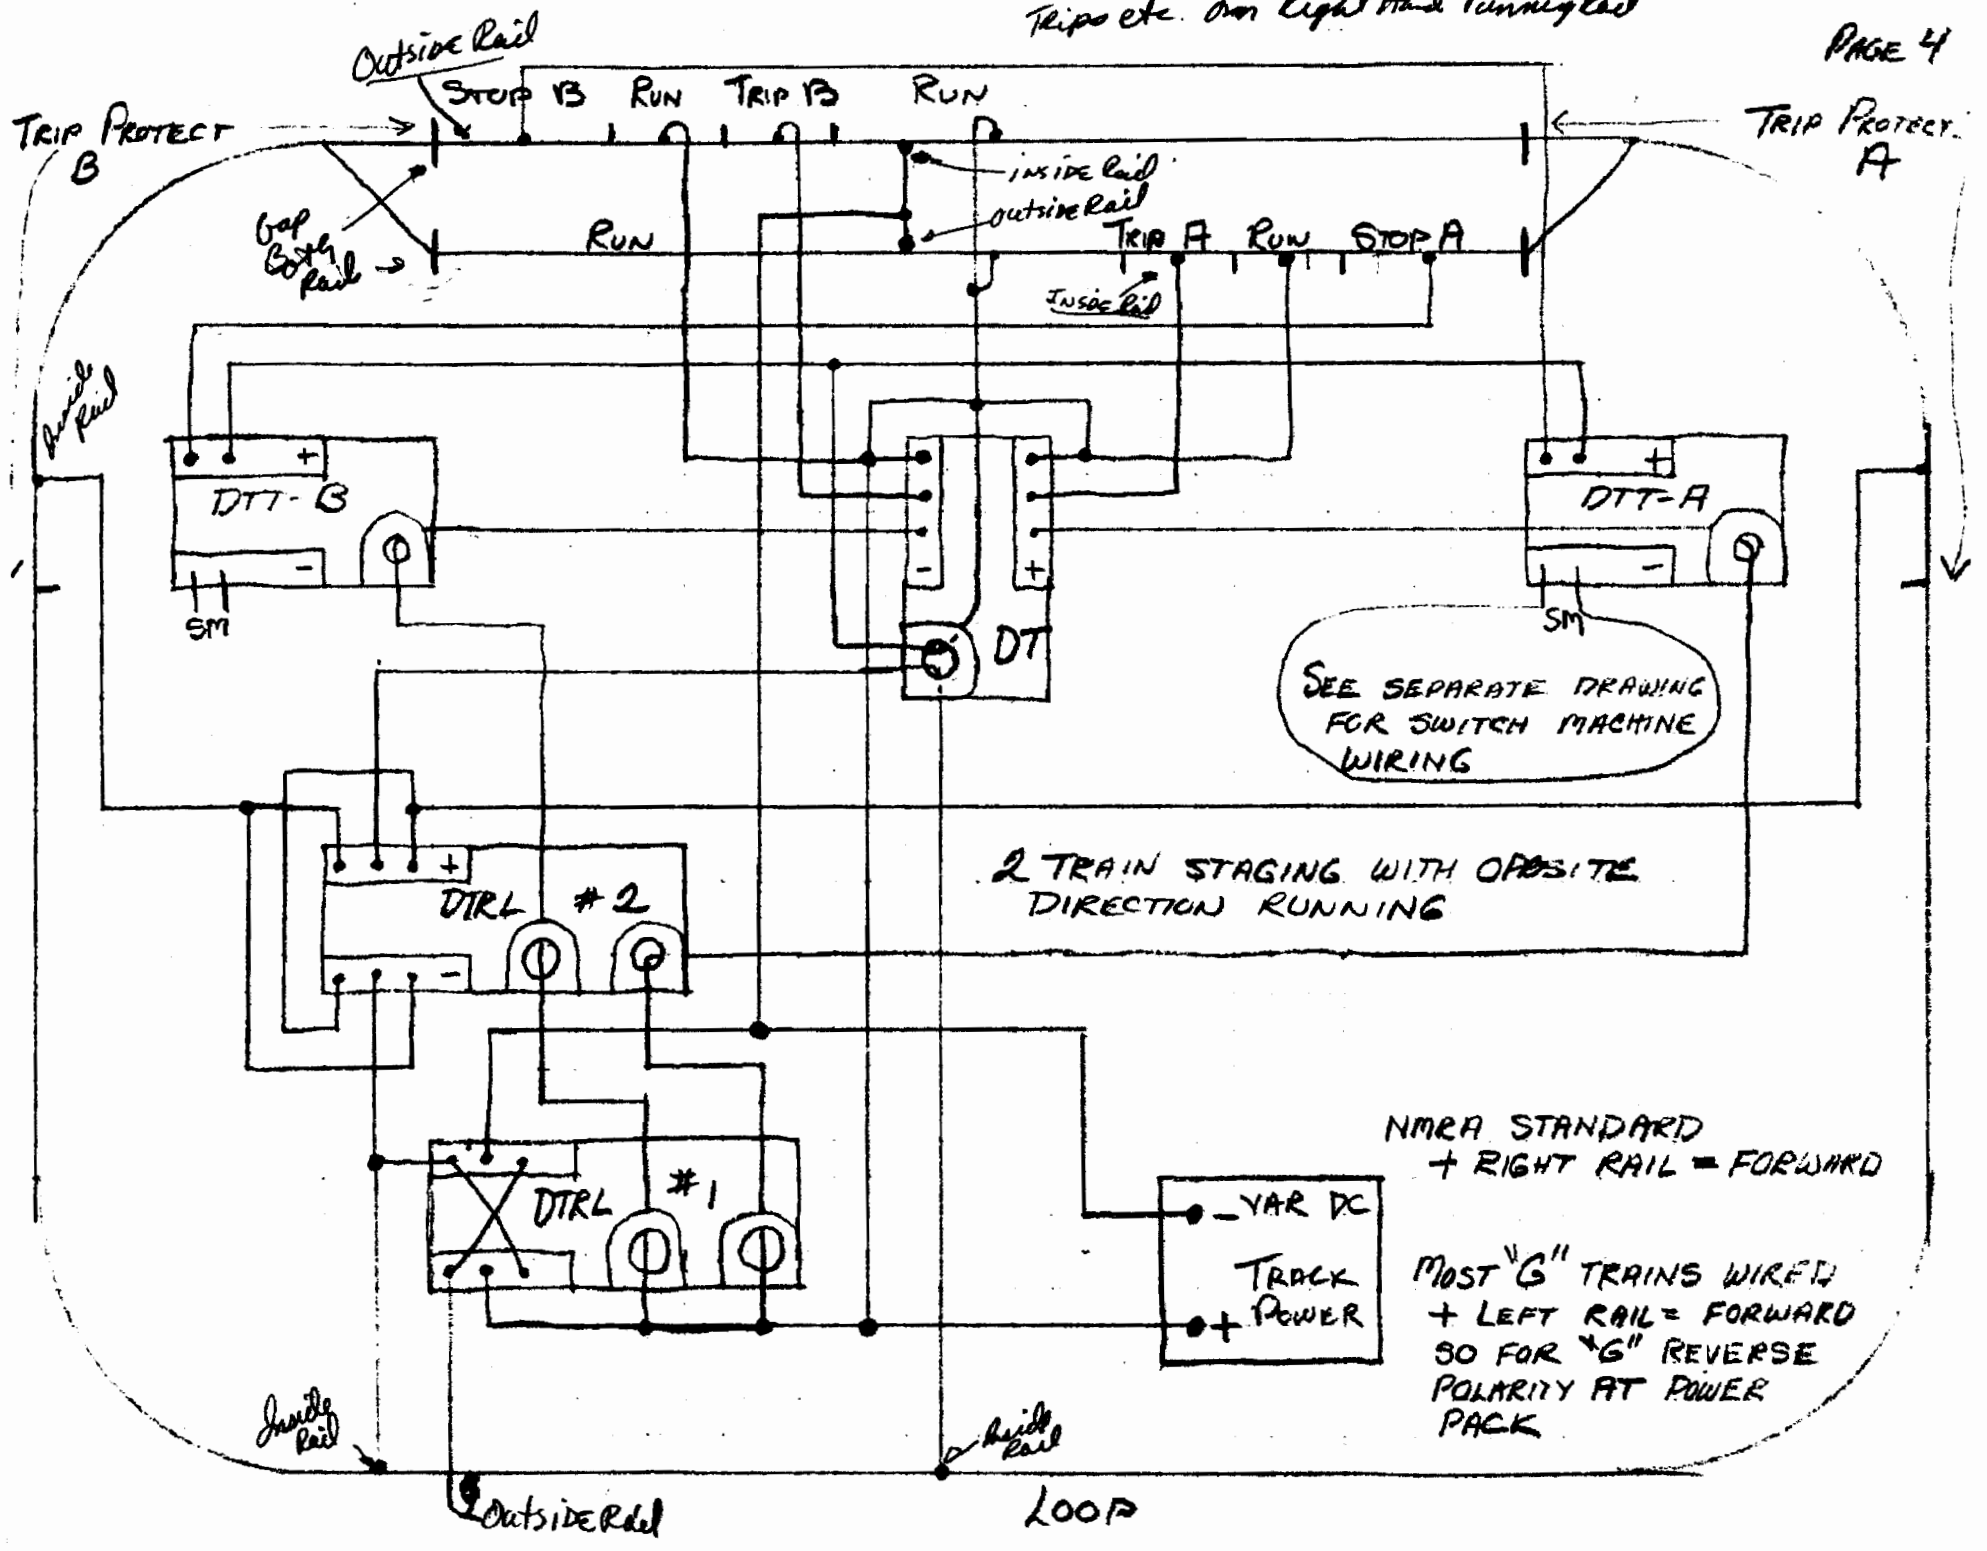 Trips etc. on Right Hand running Rail
PAGE 4
Outside Rail
STOP B RUN TRIP B RUN
TRIP PROTECT
B
TRIP PROTECT
A
inside Rail
outside Rail
Gap
Both
Rail
RUN
TRIP A RUN STOP A
Inside Rail
Inside
Rail
+
DTT-B
-
SM
- +
DT
+
DTT-A
-
SM
SEE SEPARATE DRAWING
FOR SWITCH MACHINE
WIRING
+
DTRL #2
-
2 TRAIN STAGING WITH OPOSITE
DIRECTION RUNNING
DTRL #1
- VAR DC
TRACK
+ POWER
NMRA STANDARD
+ RIGHT RAIL = FORWARD
MOST "G" TRAINS WIRED
+ LEFT RAIL = FORWARD
SO FOR "G" REVERSE
POLARITY AT POWER
PACK
Inside
Rail
Inside
Rail
Outside Rail
LOOP